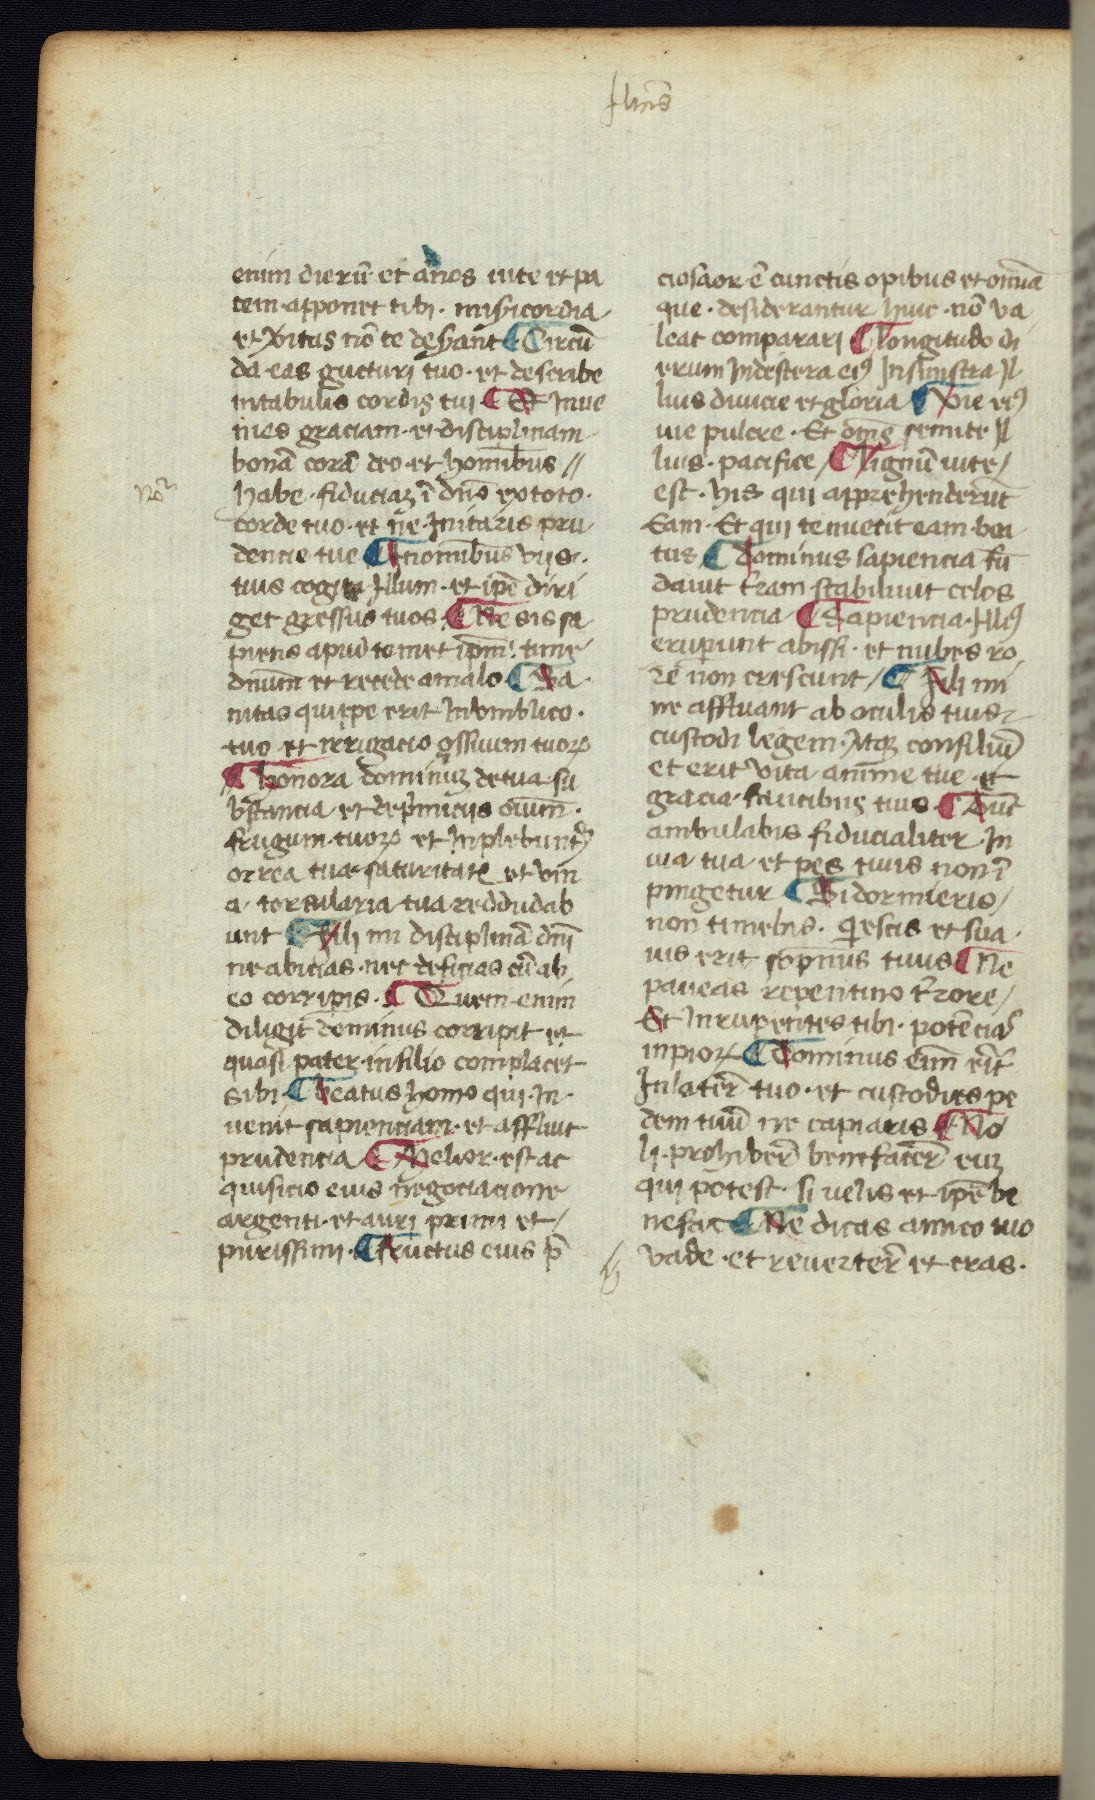 enim dierū et ānos uite et pa
cem apponet tibi · misericordia
et v̄itas nō te deserant ¶ Circū
da eas gucturi tuo · et describe
in tabulis cordis tui · ¶ Et Inue
nies graciam · et disciplinam
bonā corā deo · et homībus //
No
habe · fiduciaȝ ī dn̄o ex toto ·
corde tuo · et ne Initaris pru
dencie tue ¶ In omībus vijs ·
tuis cogita Illum · et ip̄e diri
get gressus tuos ¶ Ne sis sa
piens apud temet ip̄m · time
dn̄um et recede a malo · ¶ Sa
nitas quippe erit In vmblico ·
tuo et irrugacio ossium tuoꝝ
¶ honora dominuȝ de tua su
bstancia et de pͥmicijs oīum ·
frugum tuoꝝ et Inplebuntᷣ
orrea tua saturitate et vin
a · torcularia tua reddudab
unt ¶ Fili mi disciplinā dn̄i
ne abicias · nec deficias cū ab
eo corripis · ¶ Quem enim
diligit dominus corripit et
quasi pater · in filio complacet
sibi · ¶ Beatus homo qui · In ·
uenit sapienciam · et affluit
prudencia ¶ Melior · est ac
quisicio eius negociacione
argenti · et auri primi et /
purissimi · ¶ fructus eius p̄
ciosior ē cunctis opibus et omīa
que · desiderantur huic · nō va
leat comparari ¶ longitudo di
erum In destera eiꝰ In sinistra Il
lius diuicie et gloria ¶ Vie eiꝰ
uie pulcre · Et om̄s semite Il
lius · pacifice / ¶ Lignū uite /
est · his qui apprehenderūt
Eam · Et qui tenuerit eam bea
tus / ¶ dominus sapiencia fū
dauit t̄ram stabiliuit celos
prudencia · ¶ Sapiencia · Illiꝰ
eruperunt abissi · et nubes ro
re non crescunt / ¶ Fili mi
ne affluant ab oculis tuis
custodi legem · Atqȝ consiliū
et erit vita anime tue · et
gracia · faucibus tuis · ¶ Tūc
ambulabis fiducialiter · In
uia tua · et pes tuus non ī
pingetur ¶ Si dormieris /
non timebis · q̄escis et sua ·
uis erit sopnus tuus ¶ Ne
paueas repentino t̄rore /
Et Inrupentes tibi · potēcias
inpioꝝ ¶ Dominus eīm erit
In later̄ tuo · et custodies pe
dem tuū ne capiaris ¶ No
li · prohiber̄ benefacer̄ euȝ
qui potest · si uelis et ip̄e be
nefac ¶ Ne dicas amico tuo
vade · et reuerter̄ et cras ·